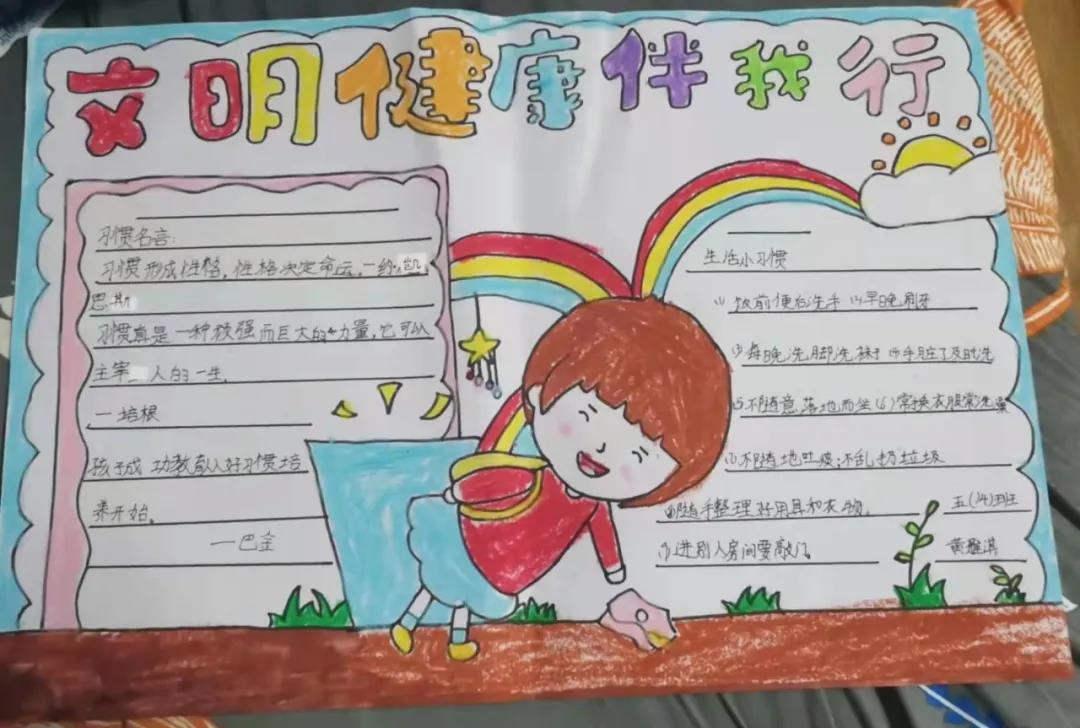 文明健康伴我行
习惯名言:
习惯形成性格,性格决定命运,一约.凯
恩斯
习惯真是一种顽强而巨大的力量,它可以
主宰 人的一生.
一培根
孩子成 功教育从好习惯培
养开始。
一巴金
生活小习惯
(1)饭前便后洗手 (2)早晚刷牙
(3)每晚洗脚洗袜子 (4)手脏了及时洗
(5)不随意落地而坐(6)常换衣服常洗澡
(7)不随地吐痰;不乱扔垃圾
(8)随手整理好用具和衣物。
(9)进别人房间要敲门
五(14)班
黄雅淇